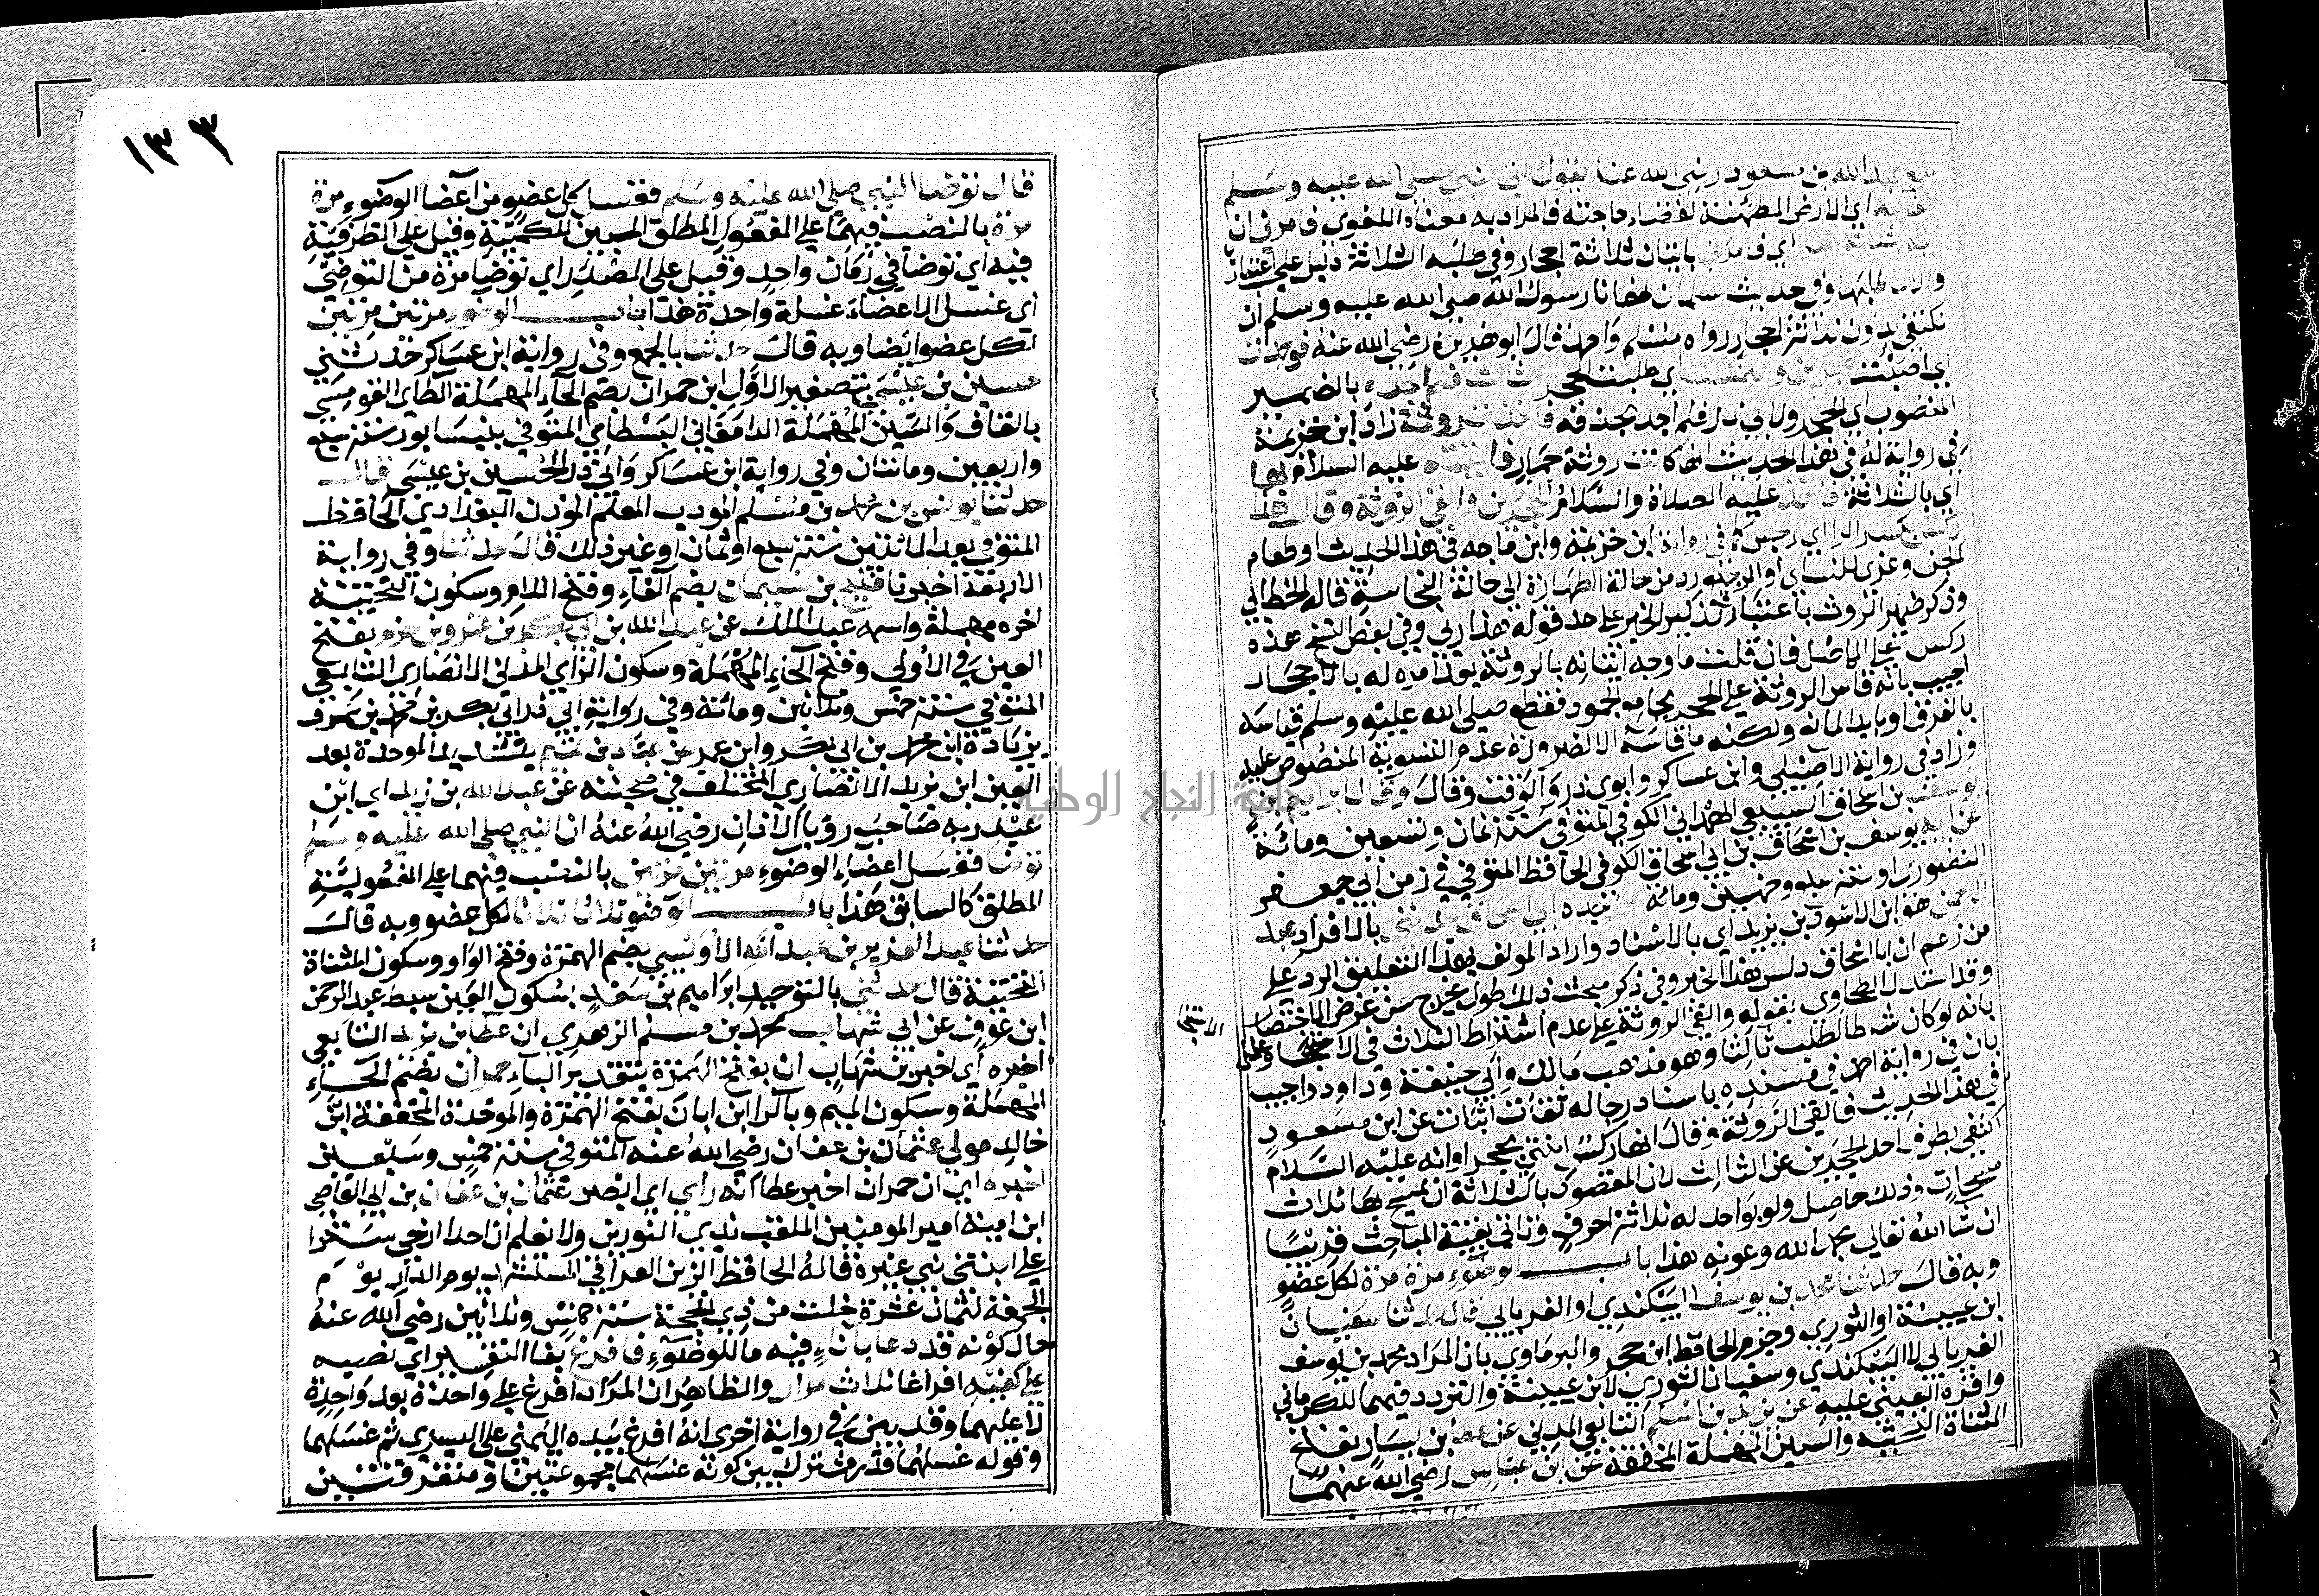 سمع عبد الله بن مسعود رضي الله عنه يقول اتى النبي صلى الله عليه وسلم
الغائط اي الارض المطمئنة لقضاء حاجته فالمراد به معناه اللغوي فامرني ان
اتيه بثلاثة احجار اي فامرني باتيان ثلاثة احجار وفي طلبه الثلاثة دليل على اعتبارها
والا لما طلبها وفي حديث سلمان نهانا رسول الله صلى الله عليه وسلم ان
نكتفي بدون ثلاثة احجار رواه مسلم واحمد قال ابو هريرة رضي الله عنه فوجدت
اي اصبت حجرين والتمست اي طلبت الحجر الثالث فلم اجده بالضمير
المنصوب اي الحجر ولابي ذر فلم اجد بحذفه فاخذت روثة زاد ابن خزيمة
في رواية له في هذا الحديث انها كانت روثة حمار فاتيته عليه السلام بها
اي بالثلاثة فاخذ عليه الصلاة والسلام الحجرين والقى الروثة وقال هذا
ركس بكسر الراء اي رجس كما في رواية ابن خزيمة وابن ماجه في هذا الحديث او طعام
الجن وعزي للنساي او الرجيع رد من حالة الطهارة الى حالة النجاسة قاله الخطابي
وذكر ضمير الروث باعتبار تذكير الخبر على حد قوله هذا ربي وفي بعض النسخ هذه
ركس على الاصل فان قلت ما وجه اتيانه بالروثة بعد امره له بالاحجار
اجيب بانه قاس الروثة على الحجر بجامع الجمود فقطع صلى الله عليه وسلم قياسه
بالفرق او بابداء المانع ولكنه ما قاسه الا لضرورة عدم التسوية المنصوص عليه
وزاد في رواية الاصيلي وابن عساكر وابوي ذر والوقت وقال وقال ابراهيم بن
يوسف بن اسحاق السبيعي الهمداني الكوفي المتوفى سنة ثمان وتسعين ومائة
عن ابيه يوسف بن اسحاق بن ابي اسحاق الكوفي الحافظ المتوفي في زمن ابي جعفر
المنصور او سنة سبع وخمسين ومائة عن جده ابي اسحاق حدثني بالافراد عبد
الرحمن هو ابن الاسود بن يزيد اي بالاسناد واراد المولف بهذا التعليق الرد على
من زعم ان ابا اسحاق دلس هذا الخبر وفي ذكر مبحث ذلك طول يخرج عن غرض الاختصار
وقد استدل الطحاوي بقوله والقى الروثة على عدم اشتراط الثلاث في الاستنجاء وعلل
الاستنجا
بانه لو كان شرطا لطلب ثالثا وهو مذهب مالك وابي حنيفة وداود واجيب
بان في رواية احمد في مسنده باسناد رجاله ثقات اثبات عن ابن مسعود
في هذا الحديث فالقى الروثة وقال انها ركس ائتني بحجر او انه عليه السلام
اكتفي بطرف احد الحجرين عن الثالث لان المقصود بالثلاثة ان يمسح بها ثلاث
مسحات وذلك حاصل ولو بواحد له ثلاثة احرف وتاتي بقية المباحث قريبا
ان شا الله تعالى بحمد الله وعونه هذا باب الوضوء مرة مرة لكل عضو
وبه قال حدثنا محمد بن يوسف البيكندي او الفريابي قال حدثنا سفيان
ابن عيينة او الثوري وجزم الحافظ ابن حجر والبرماوي بان المراد محمد بن يوسف
الفريابي لا البيكندي وسفيان الثوري لا ابن عيينة والتردد فيهما للكرماني
واقره العيني عليه عن زيد بن اسلم التابعي المدني عن عطا بن يسار بفتح
المثناة التحتية والسين المهملة المخففة عن ابن عباس رضي الله عنهما
١٣٣
قال توضا النبي صلى الله عليه وسلم فغسل كل عضو من اعضا الوضوء مرة
مرة بالنصب فيهما على المفعول المطلق المبين للكمية وقيل على الظرفية
فيه اي توضا في زمان واحد وقيل على المصدر اي توضا مرة من التوضي
اي غسل الاعضاء غسلة واحدة هذا باب الوضوء مرتين مرتين
لكل عضو ايضا وبه قال حدثنا بالجمع وفي رواية ابن عساكر حدثني
حسين بن عيسى بتصغير الاول ابن حمران بضم الحاء المهملة الطاي القومسي
بالقاف والسين المهملة الدامغاني البسطامي المتوفي بنيسابور سنة سبع
واربعين ومائتان وفي رواية ابن عساكر وابي ذر الحسين بن عيسى قال
حدثنا يونس بن محمد بن مسلم المودب المعلم المؤذن البغدادي الحافظ
المتوفي بعد المائتين سنة سبع او ثمان او غير ذلك قال حدثنا وفي رواية
الاربعة اخبرنا فليح بن سليمان بضم الفاء وفتح اللام وسكون التحتية
اخره مهملة واسمه عبد الملك عن عبد الله بن ابي بكر بن عمرو بن حزم بفتح
العين في الاولي وفتح الحاء المهملة وسكون الزاي المدني الانصاري التابعي
المتوفي سنة خمس وثلاثين ومائة وفي رواية ابي ذر ابي بكر بن محمد بن عمرو
بزيادة ابن محمد بن ابي بكر وابن عمرو عن عباد بن تميم بتشديد الموحدة بعد
العين ابن زيد الانصاري المختلف في صحبته عن عبد الله بن زيد اي ابن
عبد ربه صاحب رؤيا الاذان رضي الله عنه ان النبي صلى الله عليه وسلم
توضا فغسل اعضاء الوضوء مرتين مرتين بالنصب فيهما على المفعولية
المطلق كالسابق هذا باب الوضوء ثلاثا ثلاثا لكل عضو وبه قال
حدثنا عبد العزيز بن عبد الله الاويسي بضم الهمزة وفتح الواو وسكون المثناة
التحتية قال حدثني بالتوحيد ابراهيم بن سعد بسكون العين سبط عبد الرحمن
ابن عوف عن ابي شهاب محمد بن مسلم الزهدي ان عطا بن يزيد التابعي
اخبره اي اخبر بن شهاب ان بفتح الهمزة بتقدير الباء حمران بضم الحاء
المهملة وسكون الميم وبالرا ابن ابان بفتح الهمزة والموحدة المخففة ابن
خالد مولى عثمان بن عفان رضي الله عنه المتوفي سنة خمس وسبعين
اخبره اي ان حمران اخبر عطا انه راي اي ابصر عثمان بن عفان بن ابي القاضي
ابن امية امير المومنين الملقب بذي النورين ولا نعلم ان احدا ارخى سترا
على ابنتي نبي غيره قاله الحافظ الزين العراقي المستشهد يوم الدار يوم
الجمعة لثمان عشرة خلت من ذي الحجة سنة خمس وثلاثين رضي الله عنه
حال كونه قد دعا باناء فيه ما للوضوء فافرغ بفا التفسير اي نصبه
على كفيه افراغا ثلاث مرار والظاهر ان المراد افرغ على واحدة بعد واحدة
لا عليهما وقد بين في رواية اخرى انه افرغ بيده اليمني على اليسرى ثم غسلهما
وقوله غسلهما قدر مشترك بين كونه غسلهما مجموعتين او متفرقتين